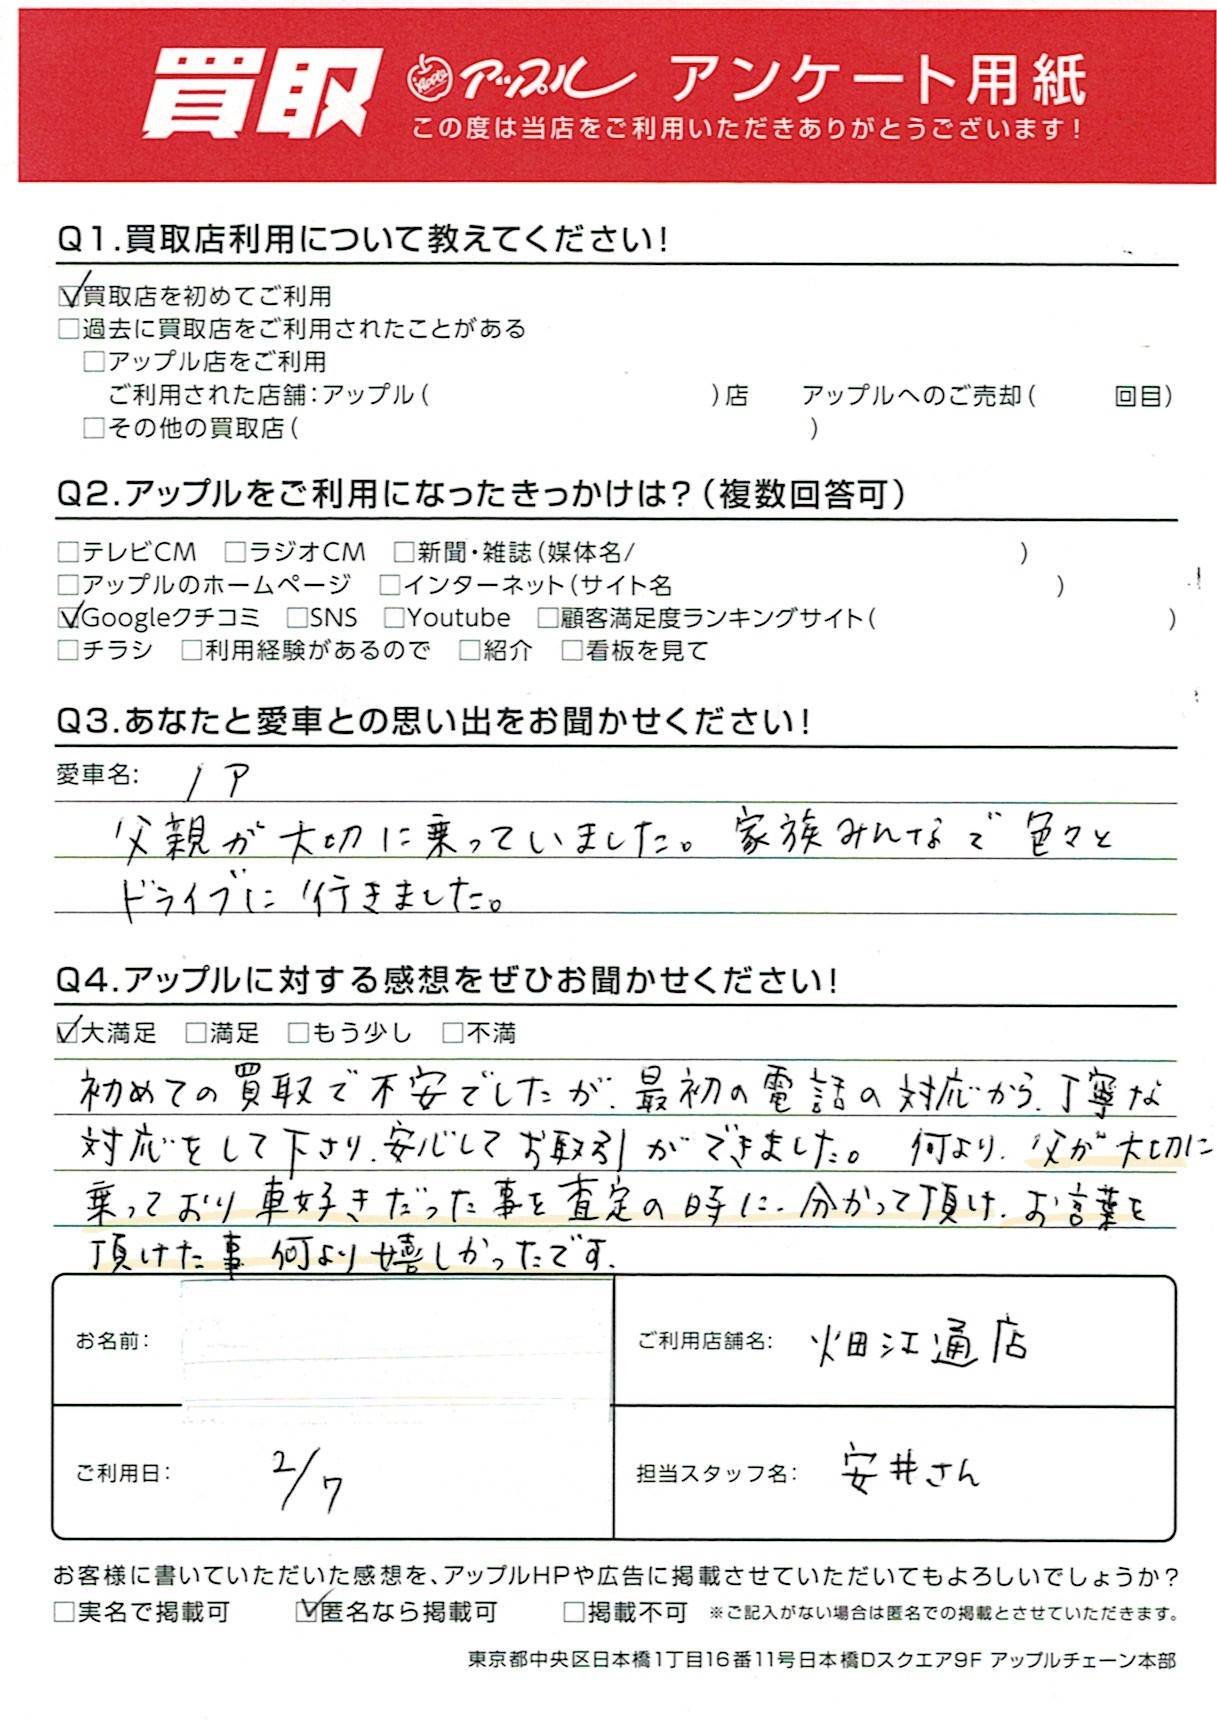 買取 Apple アップル アンケート用紙
この度は当店をご利用いただきありがとうございます!
Q1.買取店利用について教えてください!
☑買取店を初めてご利用
□過去に買取店をご利用されたことがある
□アップル店をご利用
ご利用された店舗:アップル( )店 アップルへのご売却( 回目)
□その他の買取店( )
Q2.アップルをご利用になったきっかけは?(複数回答可)
□テレビCM □ラジオCM □新聞・雑誌(媒体名/ )
□アップルのホームページ □インターネット(サイト名 )
☑Googleクチコミ □SNS □Youtube □顧客満足度ランキングサイト( )
□チラシ □利用経験があるので □紹介 □看板を見て
Q3.あなたと愛車との思い出をお聞かせください!
愛車名: ノア
父親が大切に乗っていました。家族みんなで色々と
ドライブに行きました。
Q4.アップルに対する感想をぜひお聞かせください!
☑大満足 □満足 □もう少し □不満
初めての買取で不安でしたが、最初の電話の対応から、丁寧な
対応をして下さり、安心してお取引ができました。何より、父が大切に
乗っており車好きだった事を査定の時に、分かって頂け、お言葉を
頂けた事何より嬉しかったです。
お名前: ご利用店舗名: 畑江通店
ご利用日: 2/7 担当スタッフ名: 安井さん
お客様に書いていただいた感想を、アップルHPや広告に掲載させていただいてもよろしいでしょうか?
□実名で掲載可 ☑匿名なら掲載可 □掲載不可 ※ご記入がない場合は匿名での掲載とさせていただきます。
東京都中央区日本橋1丁目16番11号日本橋Dスクエア9F アップルチェーン本部